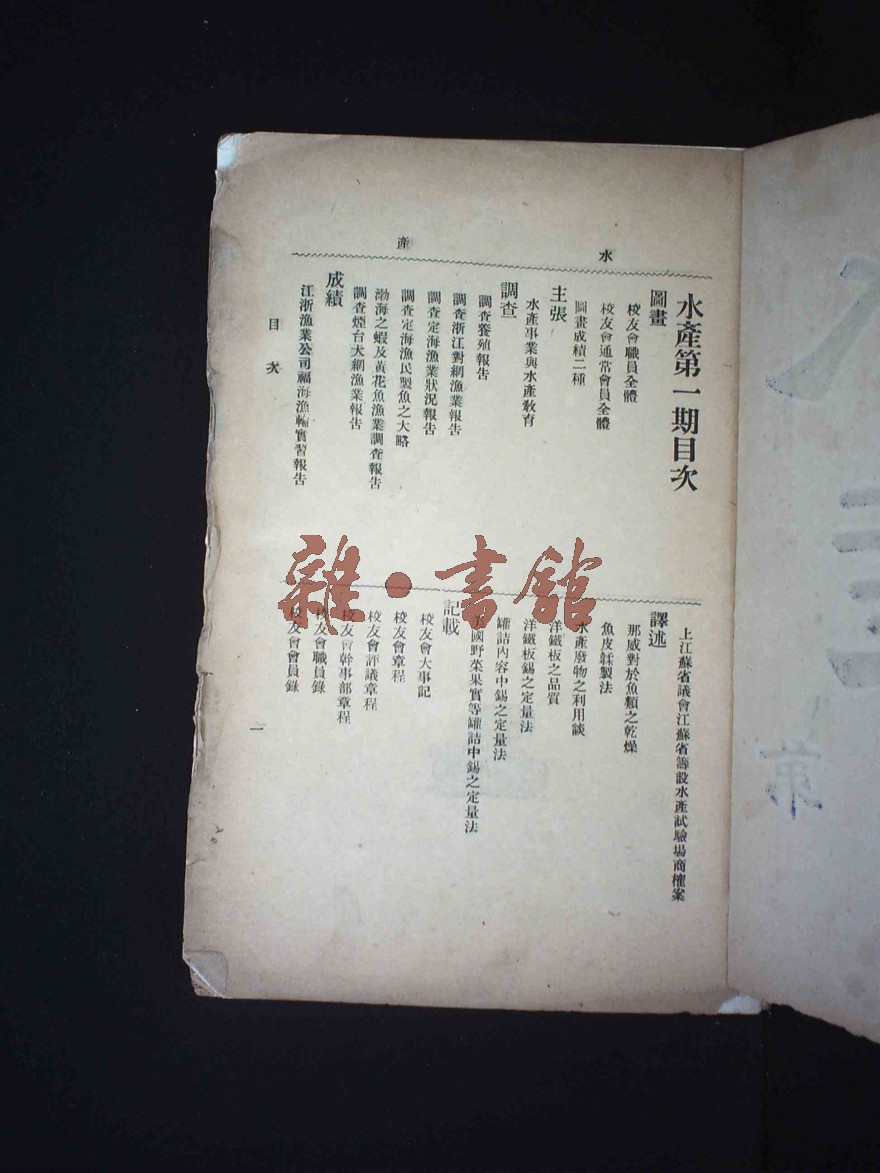 水產
水產第一期目次
圖畫
校友會職員全體
校友會通常會員全體
圖畫成績二種
主張
水產事業與水產敎育
調查
調查養殖報告
調查浙江對網漁業報告
調查定海漁業狀況報告
調查定海漁民製魚之大略
渤海之蝦及黃花魚漁業調查報告
調查煙台大網漁業報告
成績
江浙漁業公司福海漁輪實習報告
上江蘇省議會江蘇省籌設水產試驗場商榷案
譯述
那威對於魚類之乾燥
魚皮鞣製法
水產廢物之利用談
洋鐵板之品質
洋鐵板錫之定量法
罐詰內容中錫之定量法
國野菜果實等罐詰中錫之定量法
記載
校友會大事記
校友會章程
校友會評議章程
校友會幹事部章程
校友會職員錄
校友會會員錄
目次
一
雜·書館
第